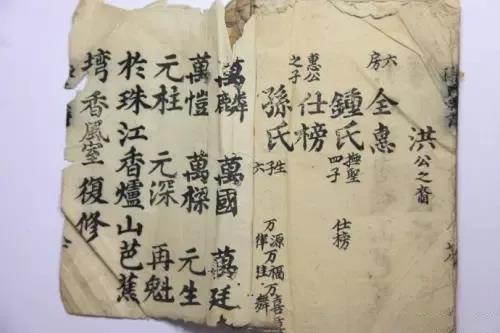 洪公之裔
六房
全惠
鍾氏 四子 仕榜
惠公之子
仕榜
孫氏 生子六 源万福万喜
萬麟 萬國 萬廷
萬愷 萬樑 元生
元柱 元深 再魁
於珠江香爐山芭蕉
塆香風室復修